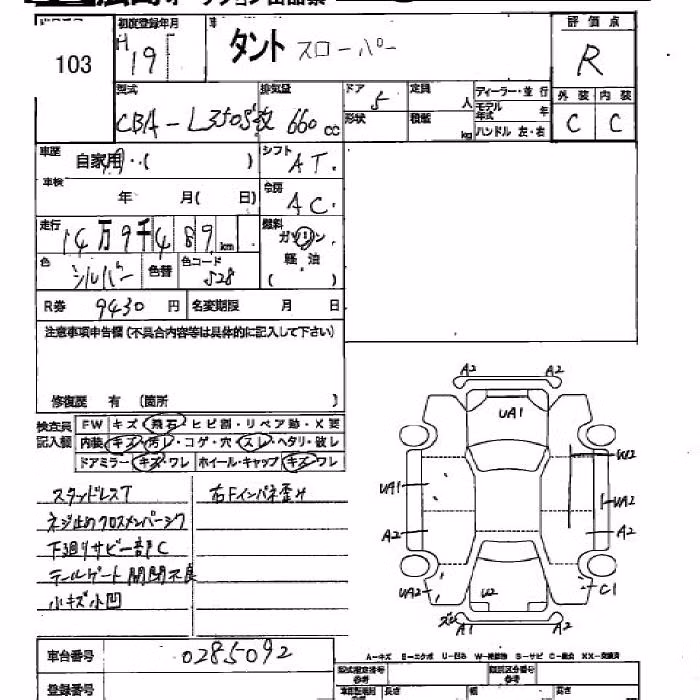 初度登録年月
103
H 19
タント スローパー
評価点
R
外装 内装
C C
型式
CBA-L350S改
排気量
660 cc
ドア
5
定員
人
形状
積載
kg
ディーラー・並行
モデル年式 年
ハンドル 左・右
車歴
自家用・( )
シフト
AT.
車検
年 月( 日)
冷房
AC.
走行
14万9千489km
燃料
ガソリン
軽油
( )
色
シルバー
色替
色コード
S28
R券 9430円
名変期限 月 日
注意事項申告欄(不具合内容等は具体的に記入して下さい)
修復歴 有 (箇所 )
検査員記入欄
FW キズ・飛石・ヒビ割・リペア跡・X要
内装 キズ・汚レ・コゲ・穴・スレ・ヘタリ・破レ
ドアミラー キズ・ワレ ホイール・キャップ キズ・ワレ
スタッドレスT
右Fインパネ歪み
ネジ止めクロスメンバーシワ
下廻りサビ一部C
テールゲート開閉不良
小キズ小凹
A2 A2
UA1
W2
UA1
UA2
A2
A2
UA2
U2
C1
A1 A2
車台番号
0285092
登録番号
型式指定番号 参考
類別区分番号 参考
長さ
幅
高さ